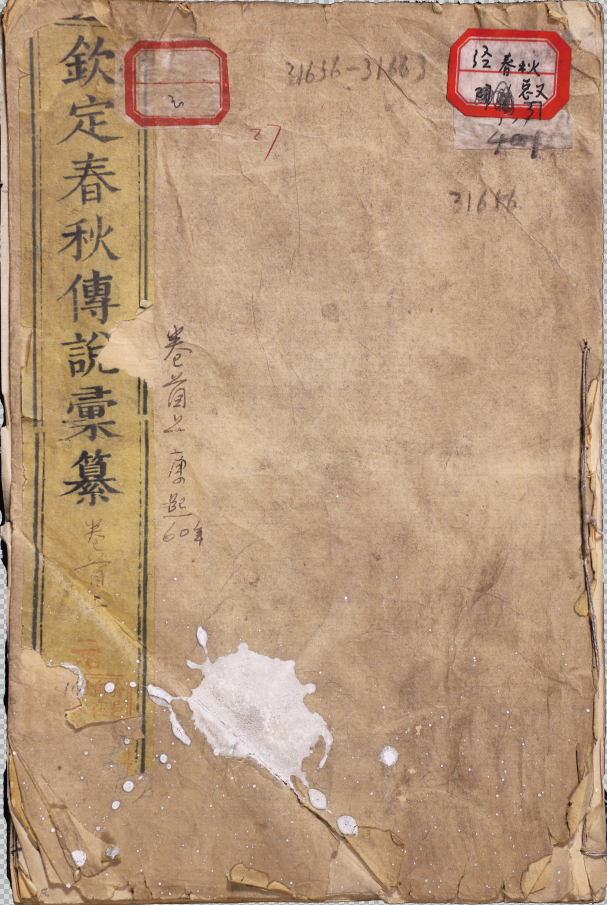 欽定春秋傳說彙纂
卷首上
31636-31663
27
经春秋
401
31636
卷首上
康熙
60年